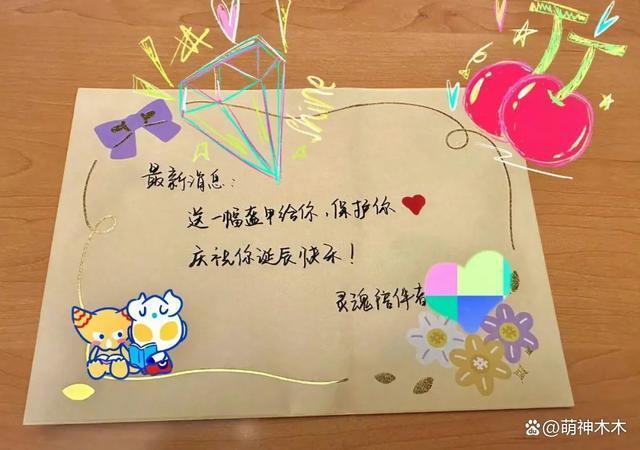 shine
最新消息：
送一幅盔甲给你，保护你
庆祝你诞辰快乐！
灵魂陪伴者
@萌神木木